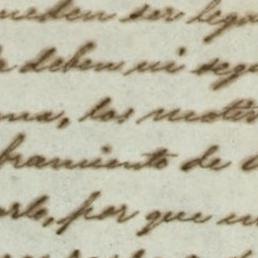 pueden ser lega
deben ni segu
ma, los motiv
bramiento de
arlo, por que un